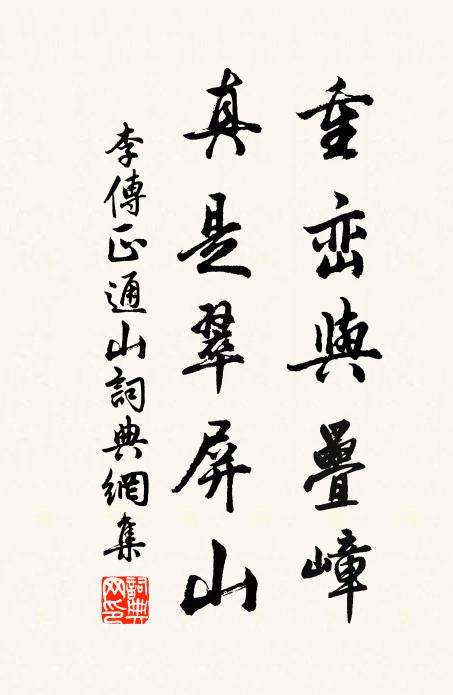 重峦與疊嶂
真是翠屏山
李傅正通山詞典網集
詞典网印